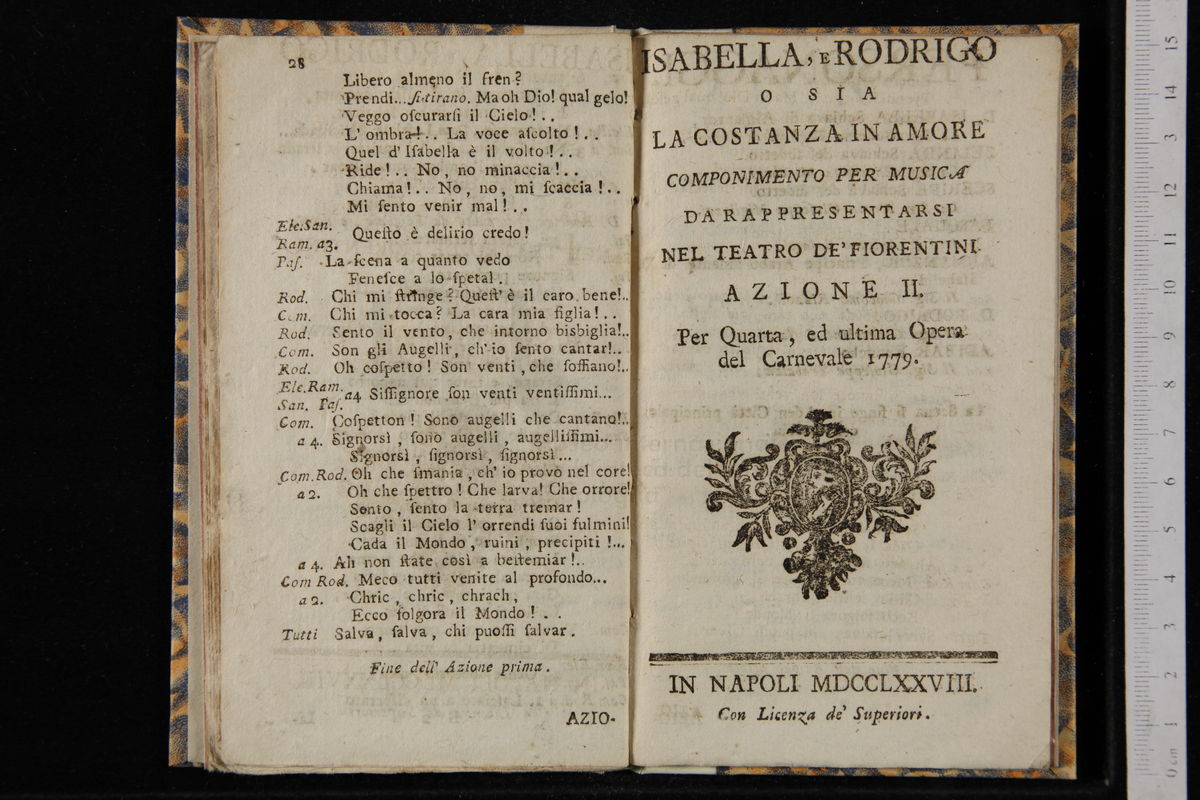 28
Libero almeno il fren?
Prendi...ſi tirano. Ma oh Dio! qual gelo!
Veggo oſcurarſi il Cielo!..
L'ombra!.. La voce aſcolto!..
Quel d'Iſabella è il volto!..
Ride!.. No, no minaccia!..
Chiama!.. No, no, mi ſcaccia!..
Mi ſento venir mal!..
Ele.San.
Ram. a3. Queſto è delirio credo!
Paſ. La ſcena a quanto vedo
Feneſce a lo ſpetal.
Rod. Chi mi ſtringe? Queſt'è il caro bene!..
Com. Chi mi tocca? La cara mia figlia!..
Rod. Sento il vento, che intorno bisbiglia!..
Com. Son gli Augelli, ch'io ſento cantar!..
Rod. Oh coſpetto! Son venti, che ſoffiano!..
Ele.Ram. a4 Siſſignore ſon venti ventiſſimi...
San. Paſ.
Com. Coſpetton! Sono augelli che cantano!..
a 4. Signorsì, ſono augelli, augelliſſimi...
Signorsì, ſignorsì, ſignorsì...
Com.Rod. Oh che ſmania, ch'io provo nel core!
a 2. Oh che ſpettro! Che larva! Che orrore!
Sento, ſento la terra tremar!
Scagli il Cielo l'orrendi ſuoi fulmini!
Cada il Mondo, ruini, precipiti!...
a 4. Ah non ſtate così a beſtemiar!..
Com Rod. Meco tutti venite al profondo...
a 2. Chric, chric, chrach,
Ecco folgora il Mondo!..
Tutti Salva, ſalva, chi puoſſi ſalvar.
Fine dell'Azione prima.
AZIO-
ISABELLA, E RODRIGO
O SIA
LA COSTANZA IN AMORE
COMPONIMENTO PER MUSICA
DA RAPPRESENTARSI
NEL TEATRO DE'FIORENTINI
AZIONE II.
Per Quarta, ed ultima Opera
del Carnevale 1779.
IN NAPOLI MDCCLXXVIII.
Con Licenza de' Superiori.
15
14
13
12
11
10
9
8
7
6
5
4
3
2
1
0 cm